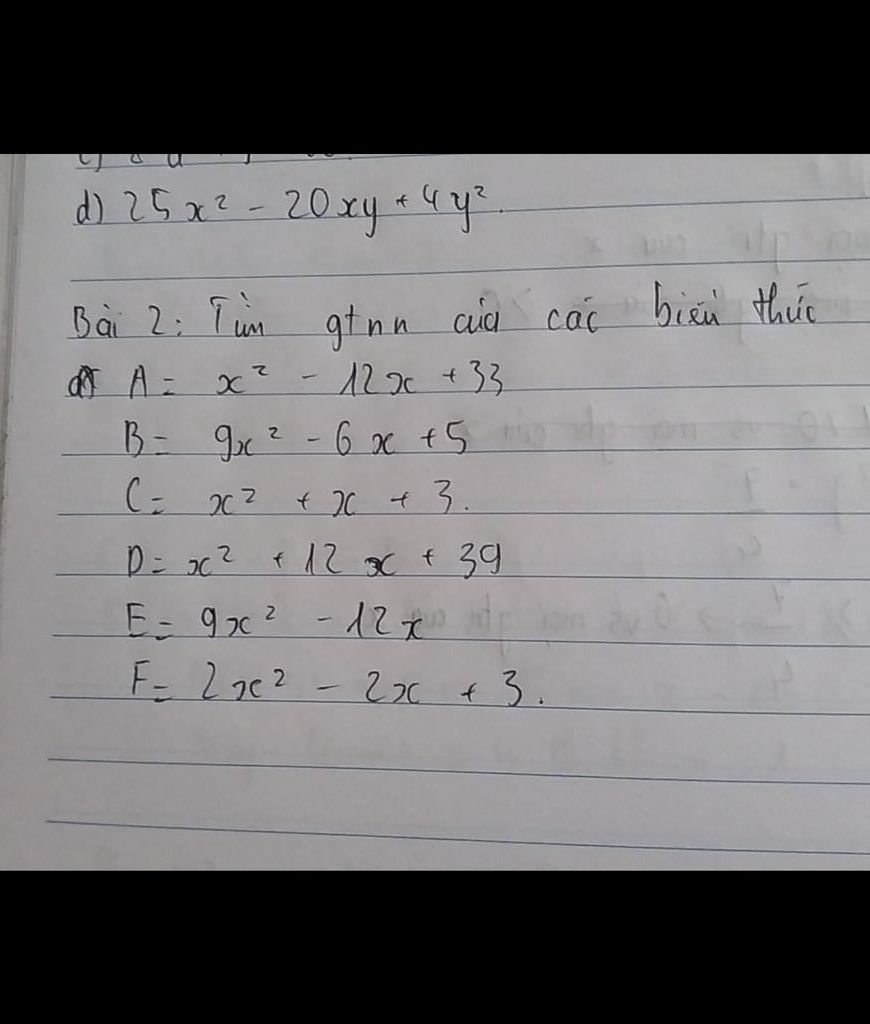 d) 25x² - 20xy + 4y².
Bài 2: Tìm gtnn của các biểu thức
A = x² - 12x + 33
B = 9x² - 6x + 5
C = x² + x + 3.
D = x² + 12x + 39
E = 9x² - 12x
F = 2x² - 2x + 3.